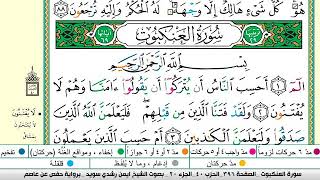 هُوَ كُلُّ شَيْءٍ هَالِكٌ إِلَّا وَجْهَهُ لَهُ الْحُكْمُ وَإِلَيْهِ تُرْجَعُونَ ٨٨
سُورَةُ الْعَنْكَبُوتِ
بِسْمِ اللَّهِ الرَّحْمَنِ الرَّحِيمِ
الٓمٓ ١ أَحَسِبَ النَّاسُ أَن يُتْرَكُوا أَن يَقُولُوا ءَامَنَّا وَهُمْ لَا
يُفْتَنُونَ ٢ وَلَقَدْ فَتَنَّا الَّذِينَ مِن قَبْلِهِمْ فَلَيَعْلَمَنَّ اللَّهُ الَّذِينَ
صَدَقُوا وَلَيَعْلَمَنَّ الْكَاذِبِينَ ٣
مد ٦ حركات لزوماً مد ٢ أو ٤ أو ٦ جوازاً إخفاء، ومواقع الغنة (حركتان) تفخيم
مد حركتان إدغام، وما لا يُلفظ قلقلة
سورة العنكبوت الصفحة ٣٩٦ الحزب ٤٠ الجزء ٢٠ بصوت الشيخ ايمن رشدي سويد برواية حفص عن عاصم